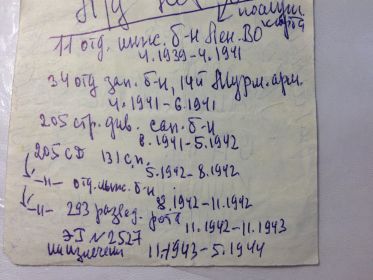 послуж.
карта
11 отд. инж. б-н Лен. ВО
4.1939-4.1941
34 отд зап. б-н, 14й Мурм. арм.
4.1941-6.1941
205 стр. див. сап. б-н
8.1941-5.1942
205 СД 131 сп,
5.1942-8.1942
-"- отд. инж. б-н
8.1942-11.1942
-"- 293 развед. рота
11.1942-11.1943
ЭГ № 2527
на излечен 11.1943-5.1944